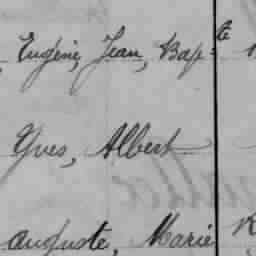 Eugène, Jean, Bap.te
Yves, Albert
auguste, Marie